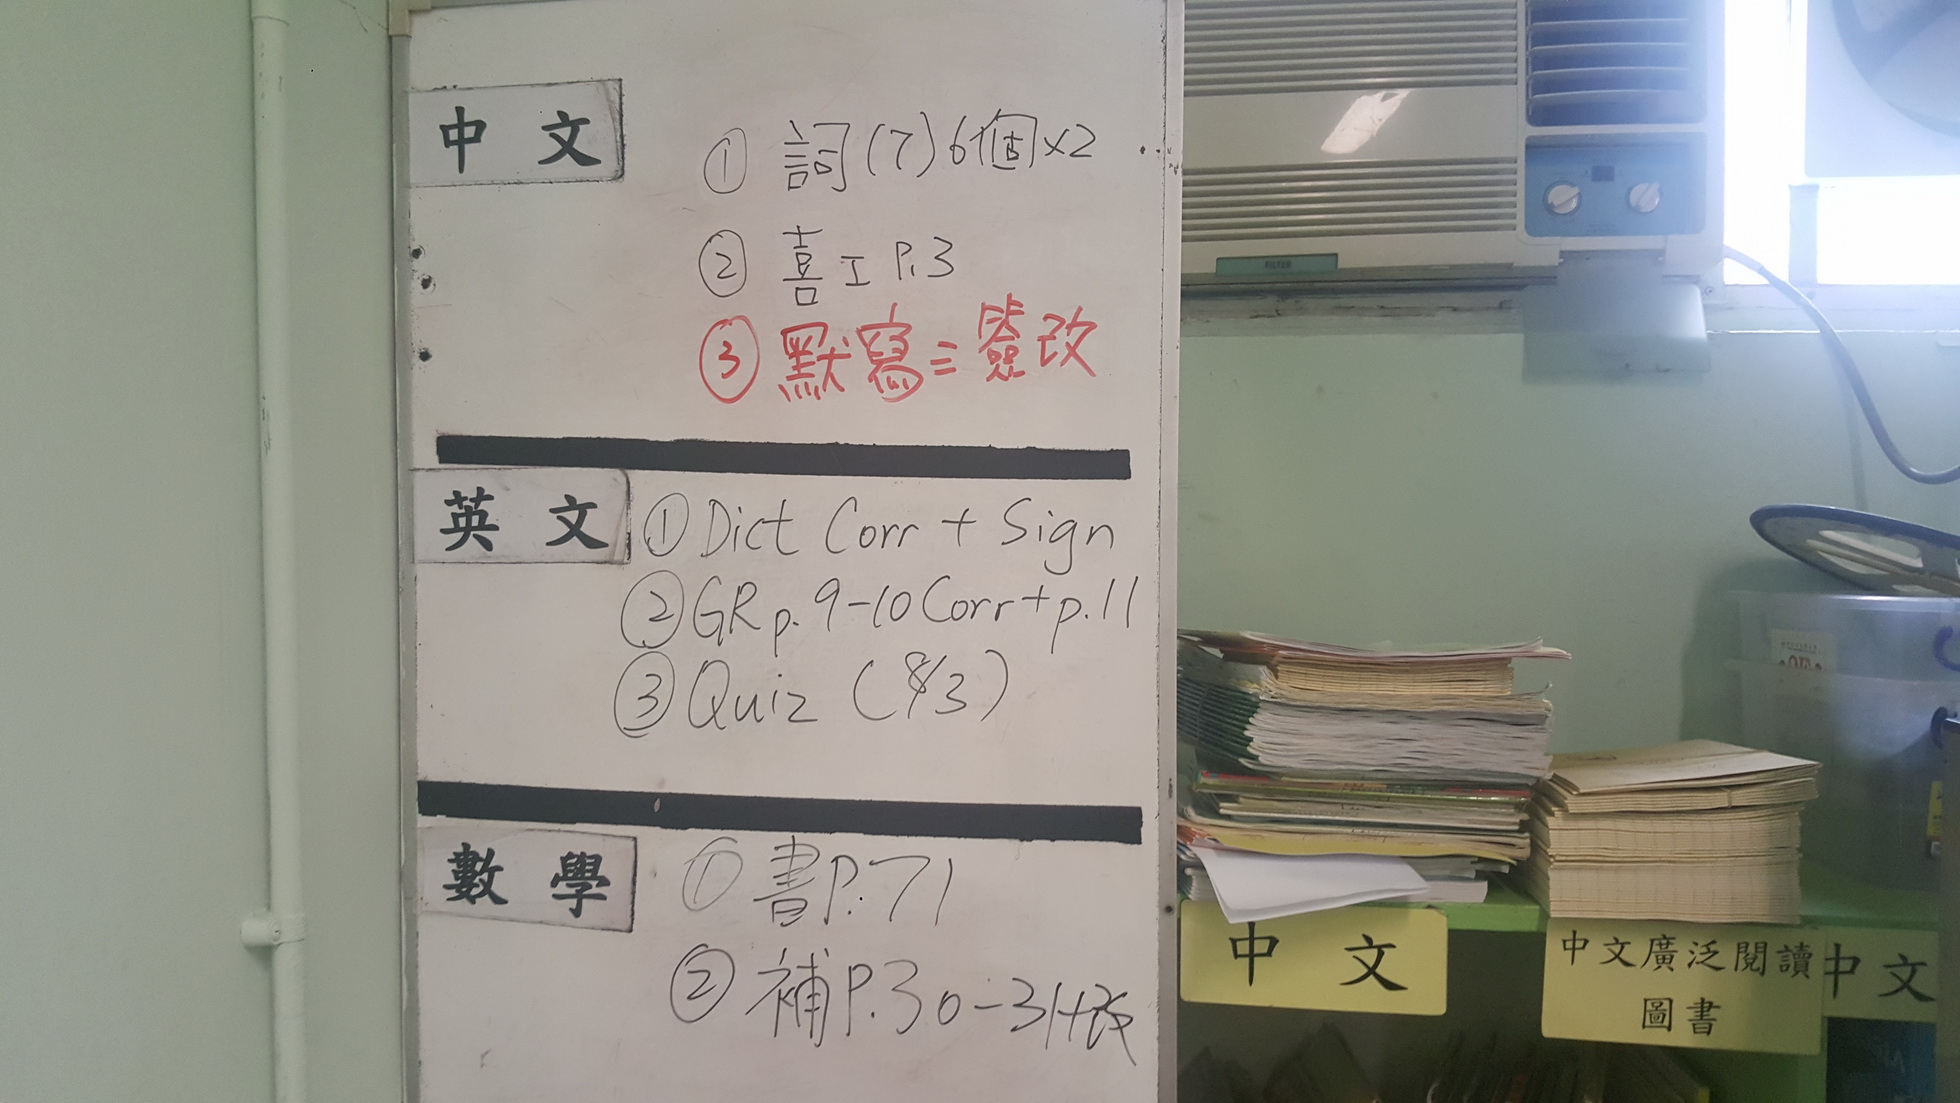 中文
① 詞(7)6個x2
② 喜工 P.3
③ 默寫三簽改
英文
① Dict Corr + Sign
② GR p. 9-10 Corr + p.11
③ Quiz (8/3)
數學
① 書P.71
② 補P.30-31+改
FILTER
中文
中文廣泛閱讀
圖書
中文